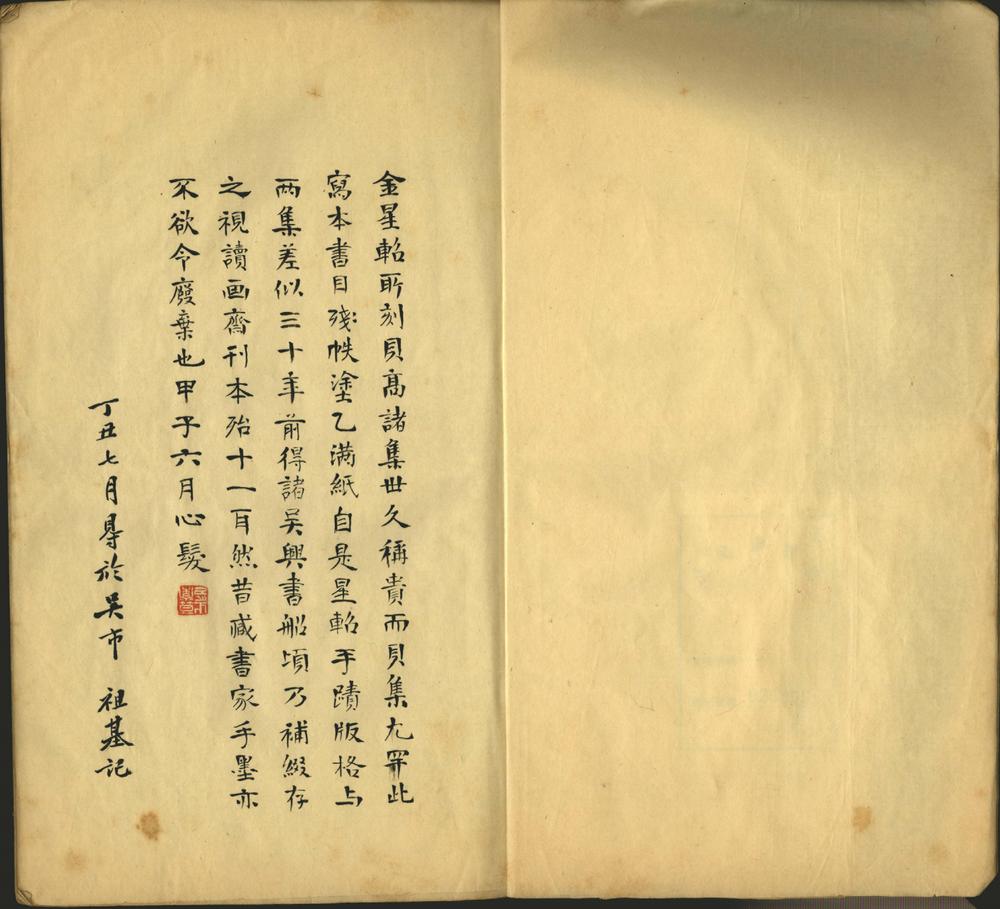 金星軺所刻貝高諸集世久稱貴而貝集尤罕此
寫本書目殘帙塗乙滿紙自是星軺手蹟版格与
两集差似三十年前得諸吴興書船頃乃補綴存
之視讀画齋刊本殆十一耳然昔藏書家手墨亦
不欲令廢棄也甲子六月心髮
丁丑七月㝵於吴市 祖基记